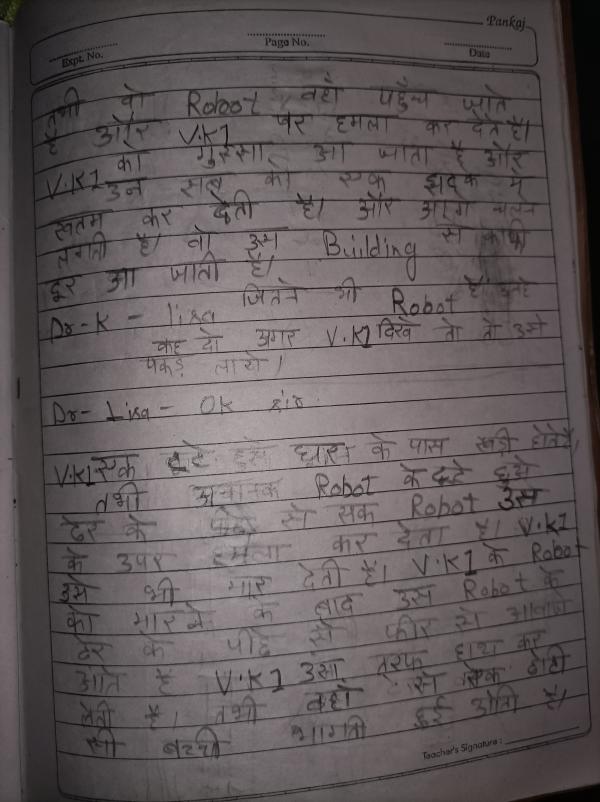 Pankaj
Expt. No.
Page No.
Date
तभी वो Robot वहाँ पहुँच जाते
है और V.K1 पर हमला कर देते है।
V.K1 को गुस्सा आ जाता है और
उन सब को एक झटके में
खतम कर देती है। और आगे चलने
लगती है। वो उस Building से काफी
दूर आ जाती है।
Dr-K - lisa जितने भी Robot है उनहे
कह दो अगर V.K1 दिखे तो उसे
पकड़ लाये।
Dr- Lisa - Ok sir.
V.K1 एक के पास खड़ी होती है,
तभी अचानक Robot के
ढेर के पीछे से एक Robot उस
के उपर हमला कर देता है। V.K1
उसे भी मार देती है। V.K1 के Robot
को मारने के बाद उस Robot के
ढेर के पीछे से फीर से आवाज
आत है V.K1 उस तरफ हाथ कर
लेती है। तभी वहाँ से एक छोटी
सी बच्ची भागती हुई ओती है।
Teacher's Signature :